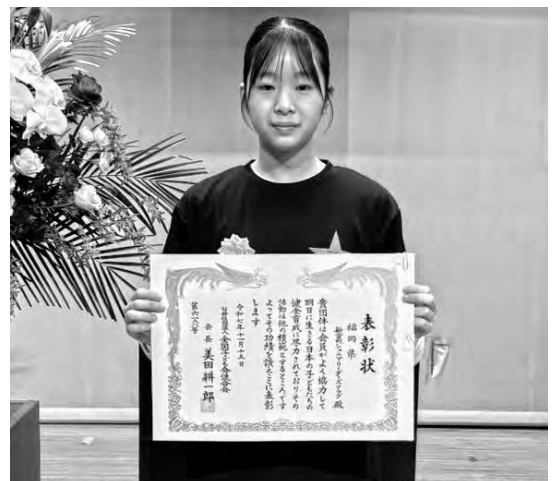 表彰状
福岡県
新宮町ジュニアリーダーズクラブ 殿
貴団体は会員がよく協力して
明日に生きる日本の子どもたちの
健全育成に尽力されておりその
活動は他の模範とするところです
よってその功績を讃えここに表彰
します
令和七年十一月十五日
公益社団法人全国子ども会連合会
会長 美田耕一郎
第六一八号